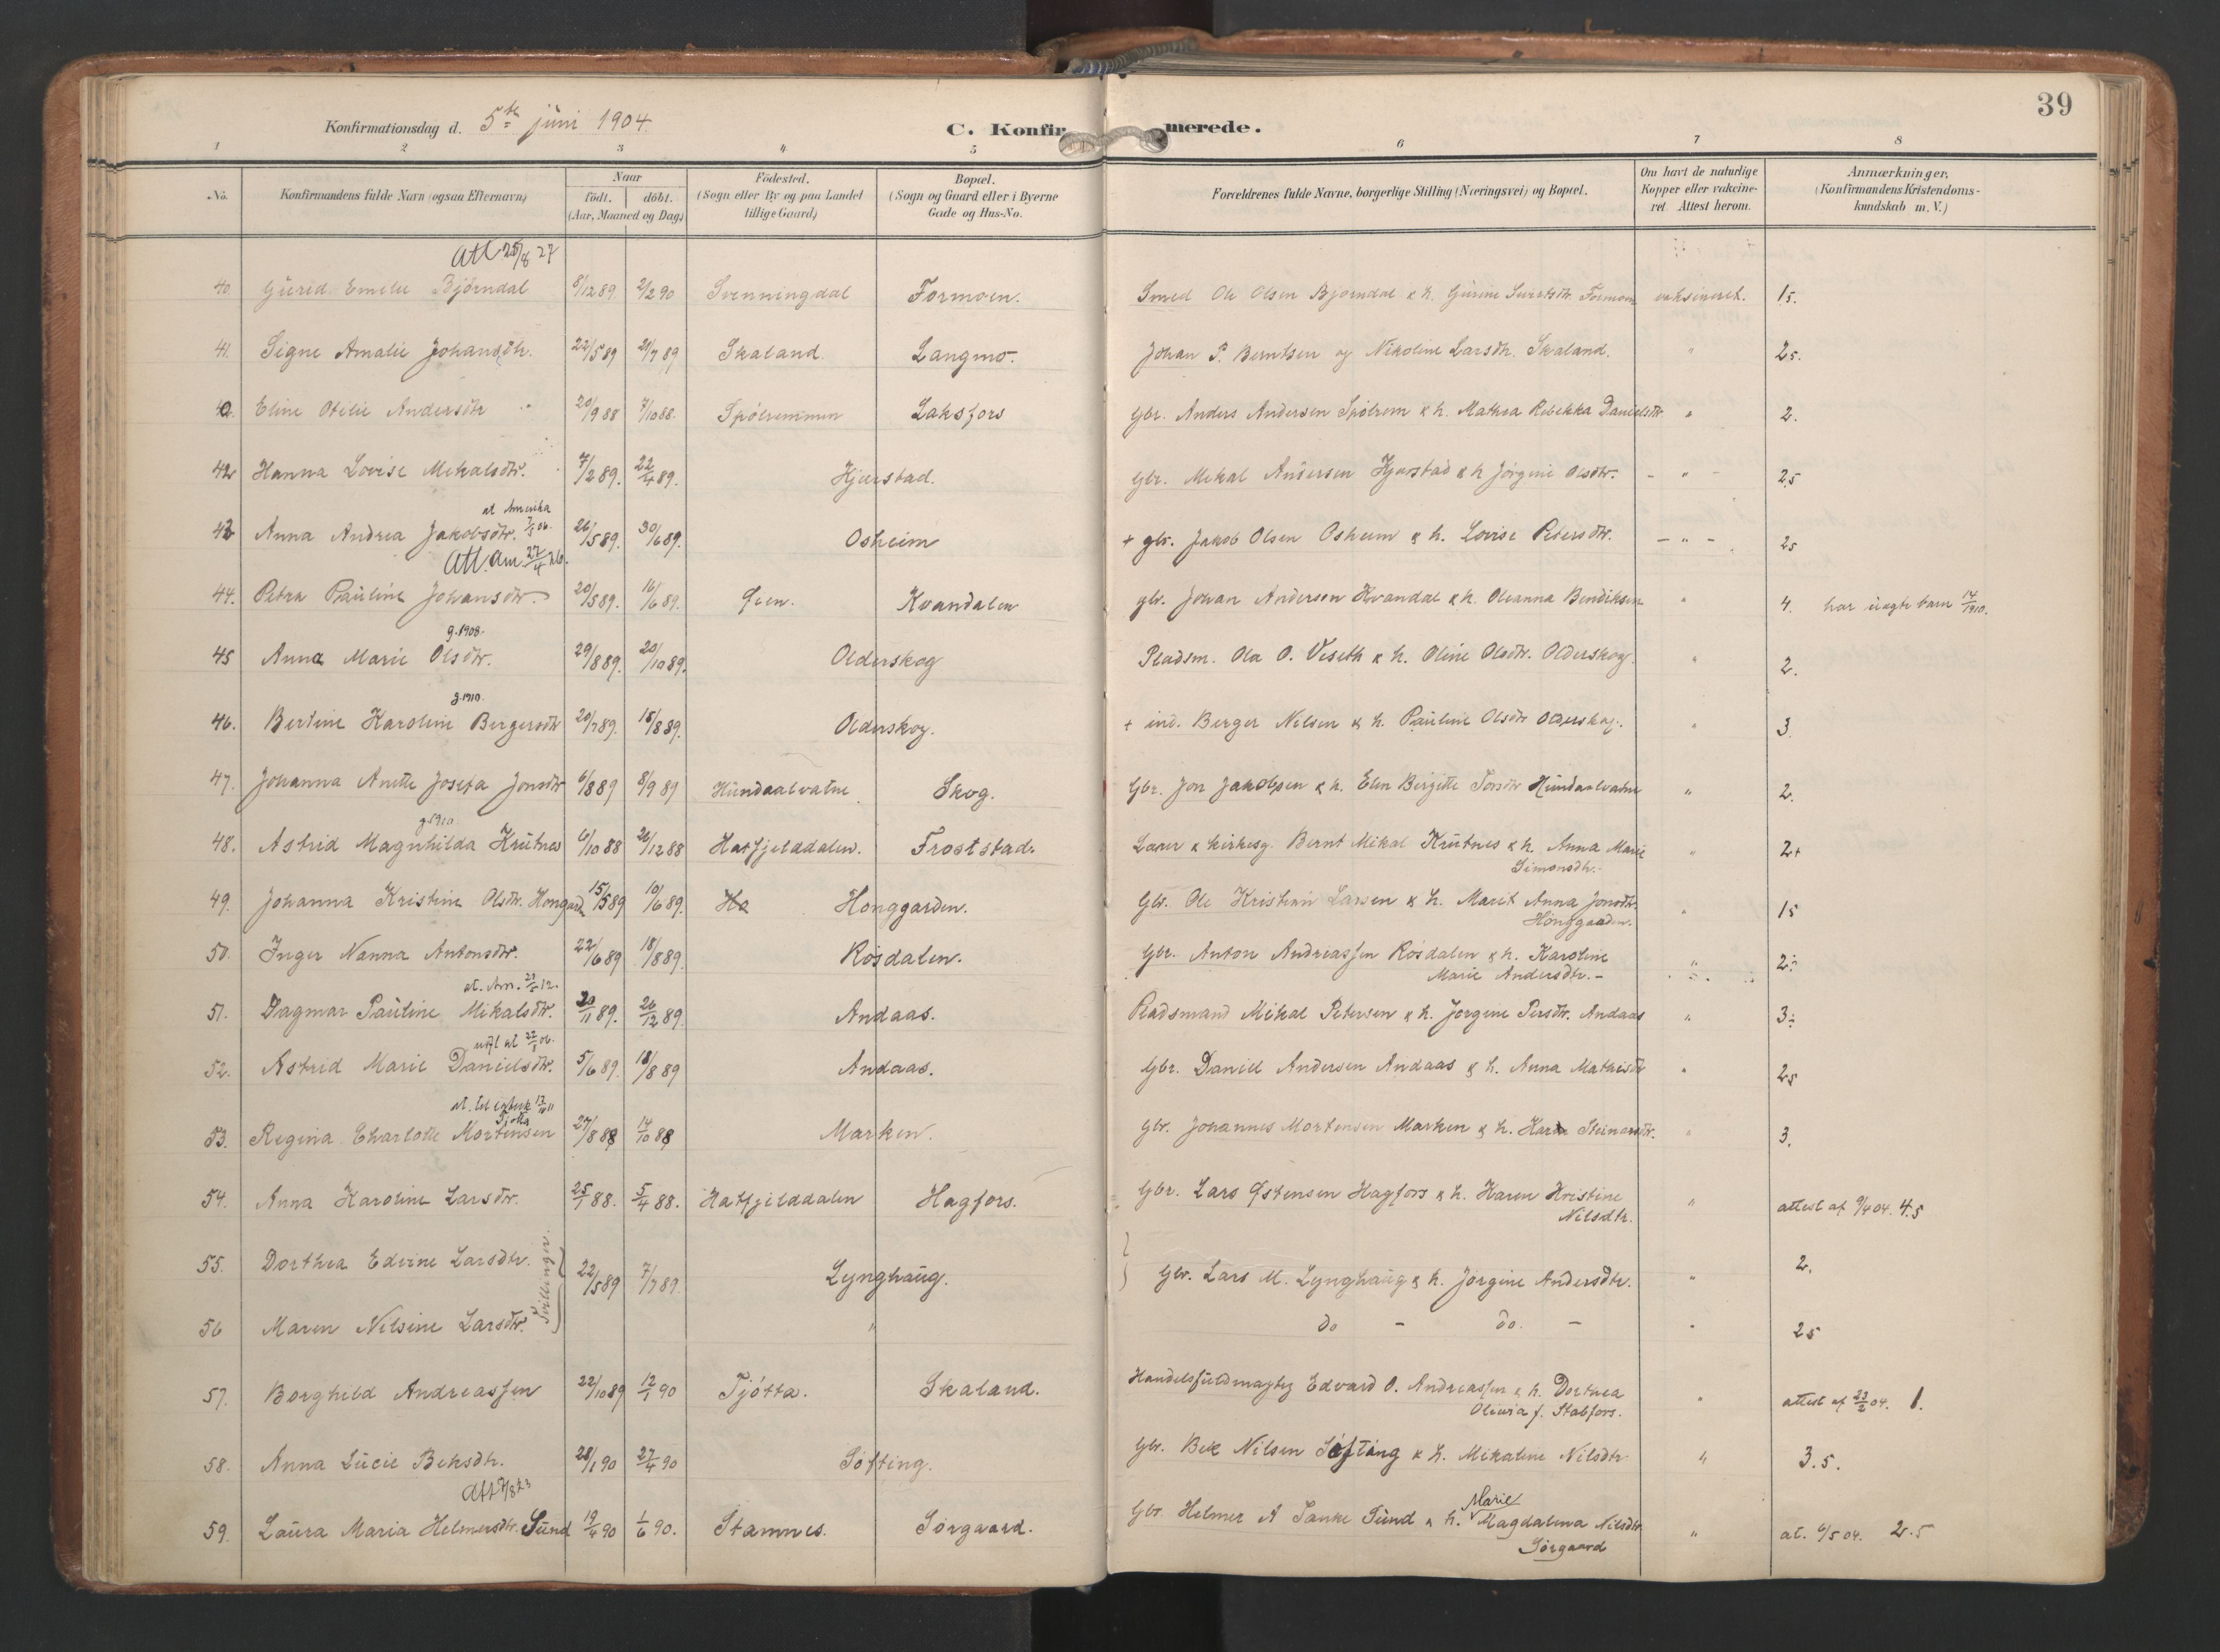 39
Konfirmationsdag d. 5te juni 1904.
C. Konfirmerede.
1 2 3 4 5 6 7 8
No.
Konfirmandens fulde Navn (ogsaa Efternavn)
Naar
födt. döbt.
(Aar, Maaned og Dag)
Födested.
(Sogn eller By og paa Landet
tillige Gaard)
Bopæl.
(Sogn og Gaard eller i Byerne
Gade og Hus-No.
Forældrenes fulde Navne, borgerlige Stilling (Næringsvei) og Bopæl.
Om havt de naturlige
Kopper eller vakcine-
ret Attest herom.
Anmærkninger,
(Konfirmandens Kristendoms-
kundskab m. V.)
Att 25/8 27
40. Gurid Emelie Bjørndal 8/12 89 2/2 90 Svenningdal Formoen. Smed Ole Olsen Bjørndal & h. Gurine Formoen vaksineret. 15.
41. Signe Amalie Johansdtr. 22/5 89 21/7 89 Skaland. Langmo. Johan P. Berntsen og Nikoline Larsdtr. Skaland. " 25.
Eline Otilie Andersdtr 20/9 88 7/10 88. Spólremmen Laksfors Gbr. Anders Andersen Spólrem & h. Mathea Rebekka Danielsdtr " 2.
42 Hanna Lovise Mikalsdtr. 7/2 89. 22/4 89. Hjerstad. Gbr. Mikal Andersen Hjerstad & h Jörgine Olsdtr. - " - 2.5
at Amerika
7/5 06.
43 Anna Andrea Jakobsdtr. 26/5 89. 30/6 89. Osheim + gbr. Jakob Olsen Osheim & h. Lovise Petersdtr. - " - 25
Att. Am. 27/4 26.
44. Petra Pauline Johansdtr. 20/5 89. 16/6 89. Øien. Kvandalen gbr. Johan Andersen Kvandal & h. Oleanna Bendiksen " 4. har uægte barn 14/1910.
g. 1908.
45 Anna Marie Olsdtr. 29/8 89. 20/10 89. Olderskog Pladsm. Ola O. Veseth & h. Oline Olsdtr. Olderskog. " 2.
g. 1910.
46. Bertine Karoline Bergersdtr 20/7 89. 18/8 89. Olderskog. + ind. Berger Nilsen & h. Pauline Olsdtr Olderskog. " 3.
47. Johanna Anette Josefa Jonsdtr 6/8 89 8/9 89 Hundaalvatne Skog. Gbr. Jon Jakobsen & h. Elen Birgitte Torsdtr Hundaalvatne " 2.
g. 1910.
48. Astrid Magnhilda Krutnes 6/10 88 26/12 88 Hatfjelddalen. Froststad. Lærer & kirkesg. Bernt Mikal Krutnes & h. Anna Marie " 2+
Simonsdtr.
49. Johanna Kristine Olsdtr. Hongard. 15/5 89 10/6 89. Ha Honggarden. Gbr. Ole Kristian Larsen & h. Marit Anna Jonsdtr. " 15
Honggaarden.
50. Inger Nanna Antonsdtr. 22/6 89 18/8 89. Rösdalen. Gbr. Anton Andreassen Rösdalen & h. Karoline " 2÷
Marie Andersdtr. -
at. Am. 29/5 12.
51. Dagmar Pauline Mikalsdtr. 20/11 89. 26/12 89. Andaas. Pladsmand Mikal Petersen & h. Jörgine Persdtr. Andaas " 3÷
utfl at 22/8 06.
52. Astrid Marie Danielsdtr. 5/6 89. 18/8 89 Andaas. Gbr. Daniel Andersen Andaas & h. Anna Mathisdtr " 25
at. til 13/10 11
Tjøtta
53. Regina Charlotte Mortensen 27/8 88 14/10 88 Marken. Gbr. Johannes Mortensen Marken & h. Karen Steinarsdtr. " 3.
54. Anna Karoline Larsdtr. 25/1 88. 5/4 88. Hatfjelddalen Hagfors. Gbr. Lars Østensen Hagfors & h. Karen Kristine " attest af 9/4 04. 4.5
Nilsdtr.
55. Dorthea Edvine Larsdtr. Tvillinger. 22/5 89 7/7 89. Lynghaug. Gbr. Lars M. Lynghaug & h. Jörgine Andersdtr. " 2.
56 Maren Nilsine Larsdtr. " do - do. - " 25
57. Borghild Andreassen 22/10 89 12/1 90 Tjótta. Skaland. Handelsfuldmægtig Edvard O. Andreassen & h. Dorthea " attest af 23/2 04. 1.
Olivia f. Stabfors.
58. Anna Lucie Beksdtr. 28/1 90 27/4 90 Söfting. Gbr. Bek Nilsen Söfting & h. Mikaline Nilsdtr. " 3.5.
Att 7/8 23
59. Laura Maria Helmersdtr. Sund 19/4 90 1/6 90. Stamnes. Sörgaard. Gbr. Helmer A Tanke Sund & h. Marie Magdalena Nilsdtr. " at. 6/5 04. 2.5
Sörgaard